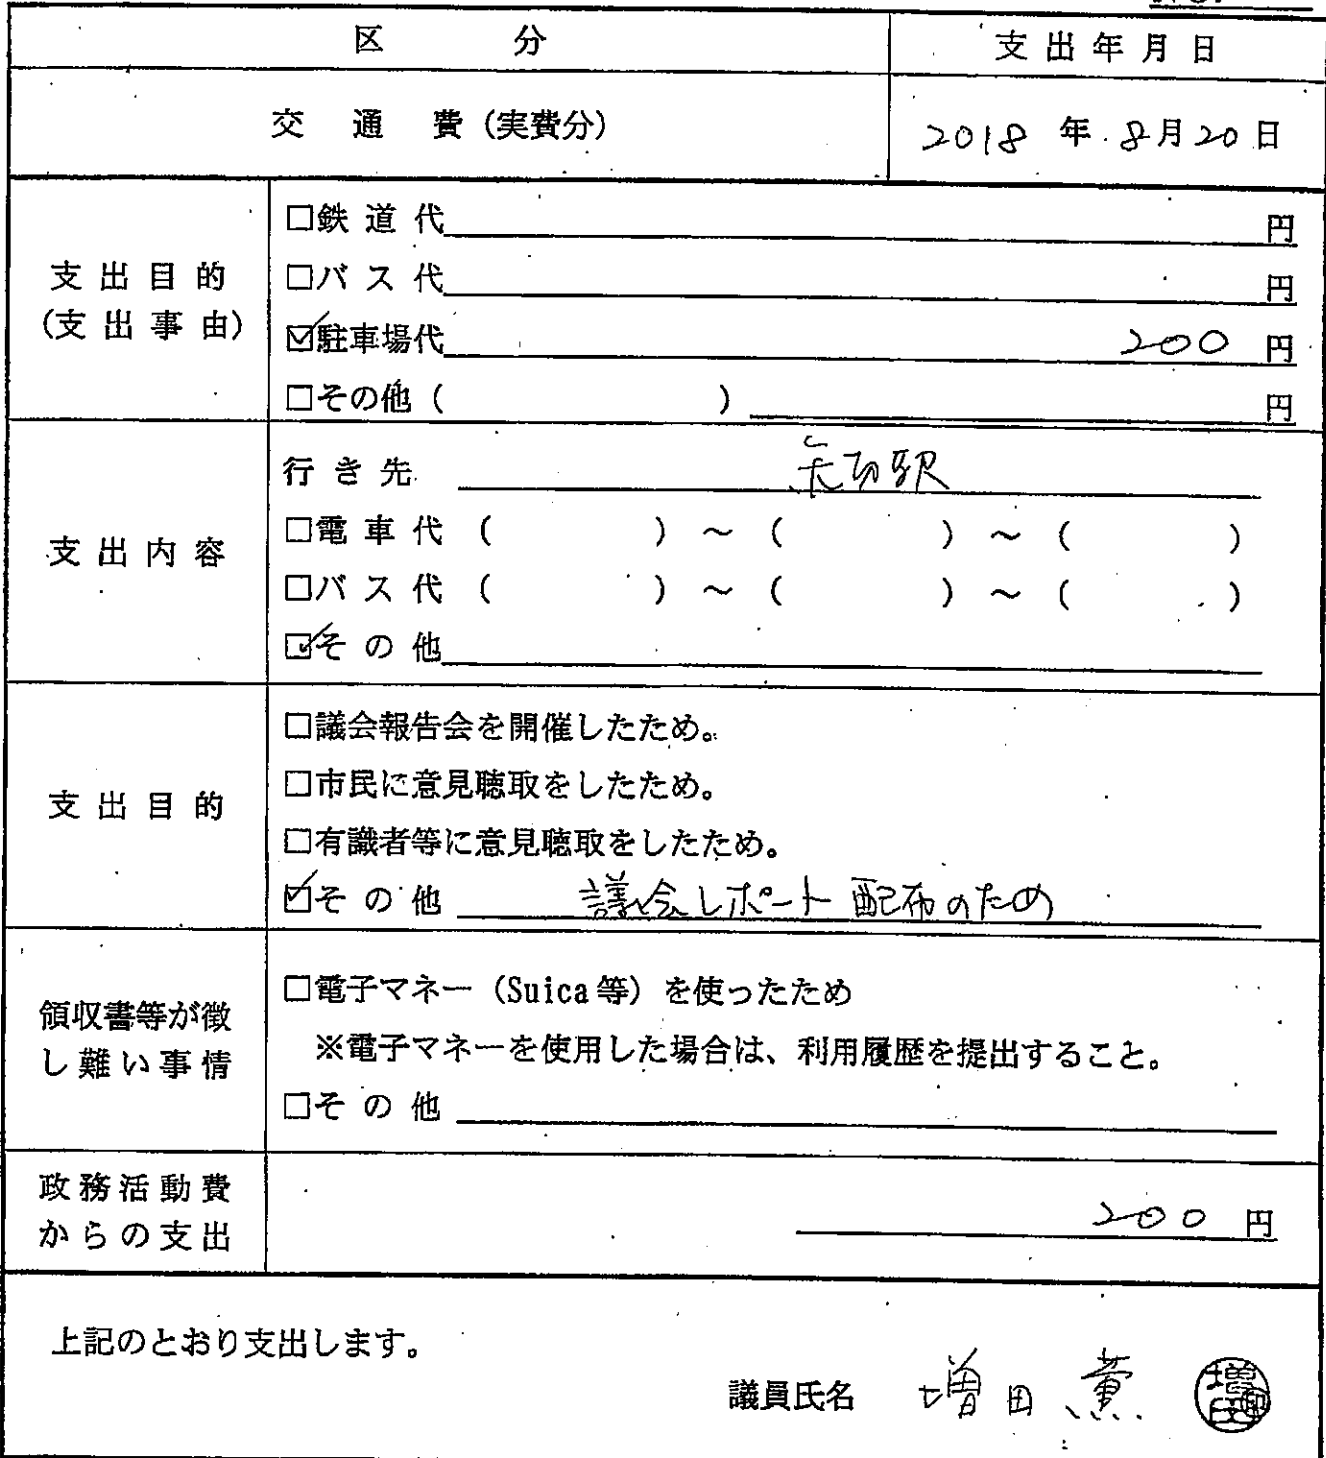 区 分 支出年月日
交 通 費（実費分） 2018 年 8月20日
支出目的
(支出事由)
□鉄道代 円
□バス代 円
☑駐車場代 200 円
□その他（ ） 円
支出内容
行き先 矢切駅
□電車代（ ）～（ ）～（ ）
□バス代（ ）～（ ）～（ ）
☑その他
支出目的
□議会報告会を開催したため。
□市民に意見聴取をしたため。
□有識者等に意見聴取をしたため。
☑その他 議会レポート配布のため
領収書等が徴
し難い事情
□電子マネー（Suica等）を使ったため
※電子マネーを使用した場合は、利用履歴を提出すること。
□その他
政務活動費
からの支出
200 円
上記のとおり支出します。
議員氏名 増田 薫